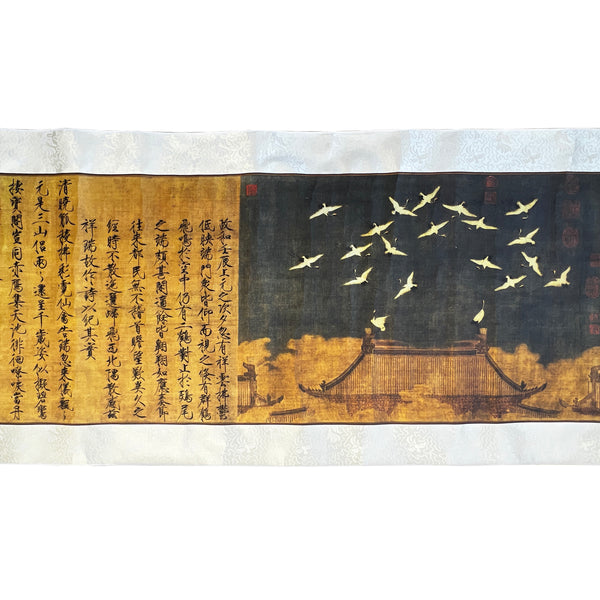 政和壬辰上元之次夕忽有祥雲拂鬱
低映端門衆皆仰而視之倏有群鶴
飛鳴於空中仍有二鶴對止於鴟尾
之端頗甚閑適餘皆翱翔如應奏節
往來都民無不稽首瞻望歎異久之
經時不散迤邐歸飛西北隅散感茲
祥瑞故作詩以紀其實
清曉觚稜拂彩霓仙禽告瑞忽來儀飄々
元是三山侶兩々還呈千歲姿似擬碧鸞
棲寶閣豈同赤鴈集天池徘徊嘹唳當丹